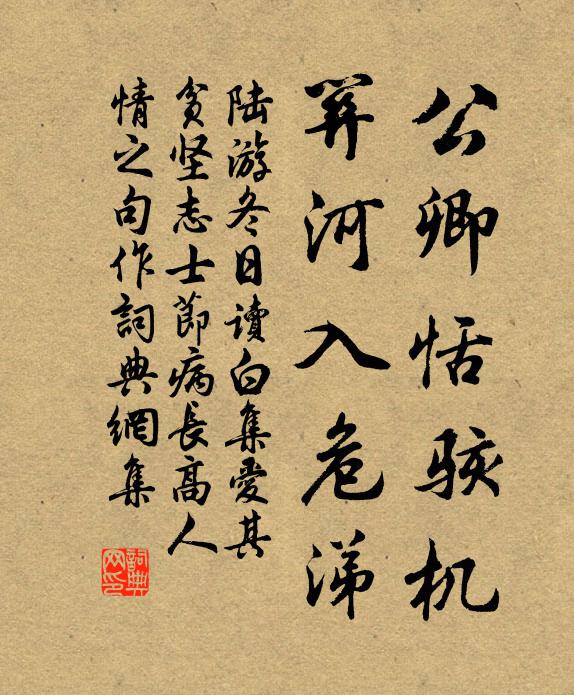 公卿恬骇机
河入危涕
陆游冬日读白集爱其
贫坚志士节病长高人
情之句作詞典網集
詞典网印